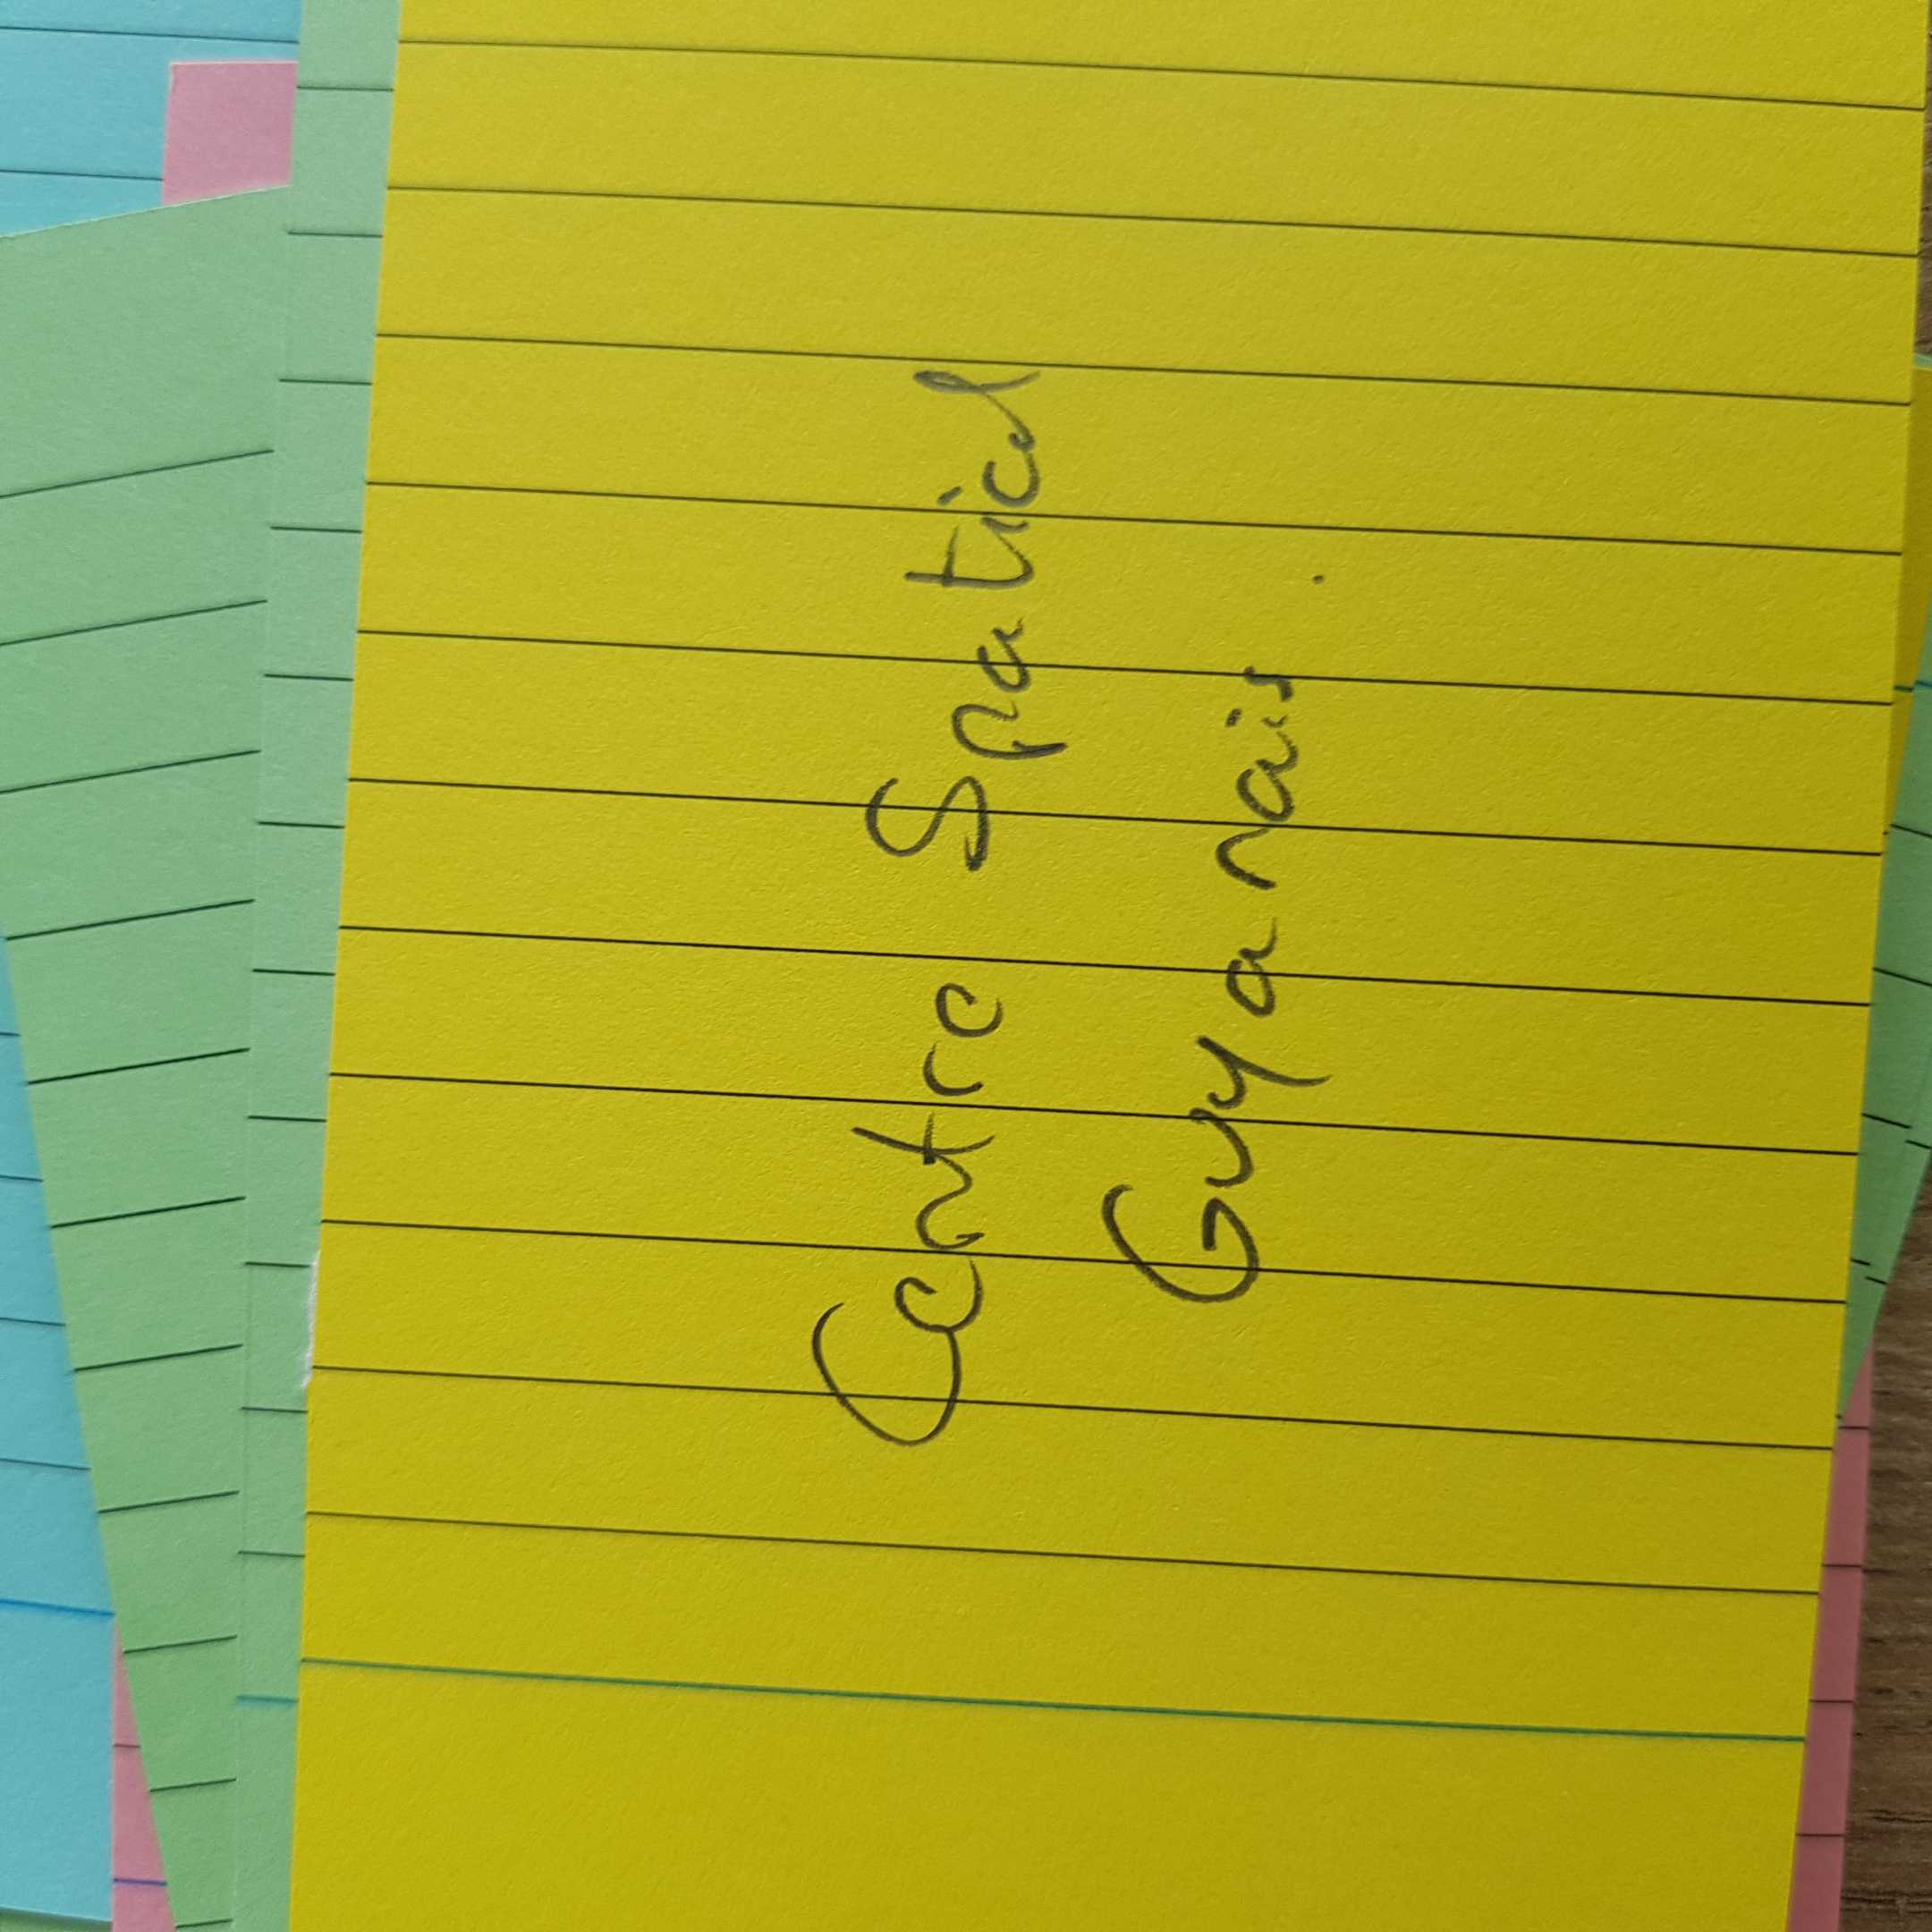 Centre Spatial
Guyanais.